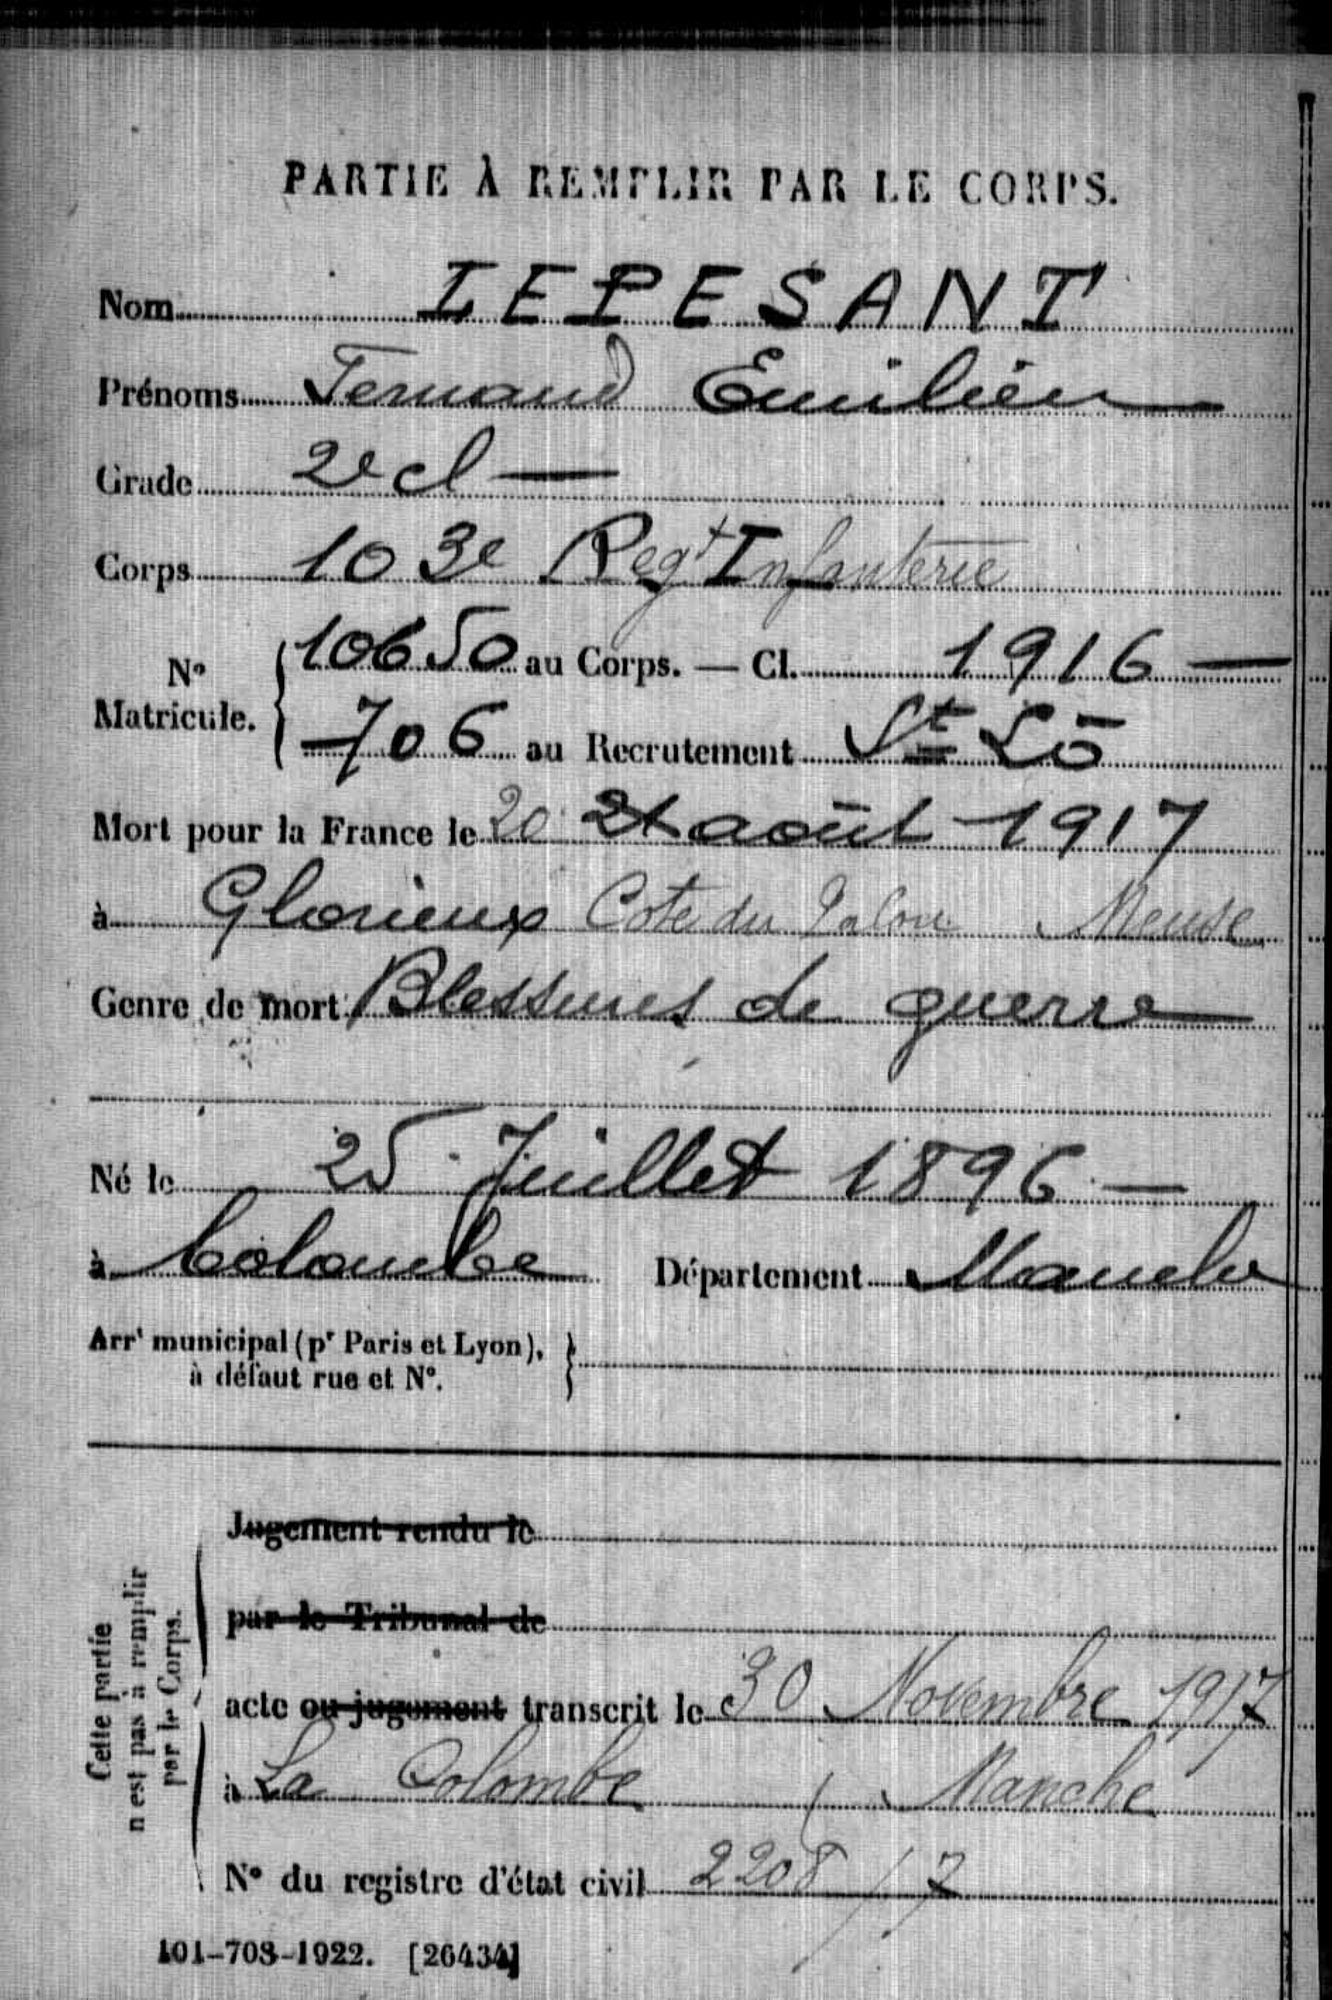 PARTIE À REMPLIR PAR LE CORPS.
Nom LEPESANT
Prénoms Fernand Emilien
Grade 2e cl —
Corps 103e Regt Infanterie
No Matricule. 10650 au Corps. — Cl. 1916 —
706 au Recrutement St Lô
Mort pour la France le 20 21 août 1917
à Glorieux Cote du Talou Meuse
Genre de mort Blessures de guerre
Né le 25 Juillet 1896 —
à Colombe Département Manche
Arrt municipal (pr Paris et Lyon),
à défaut rue et No.
Jugement rendu le
par le Tribunal de
acte ou jugement transcrit le 30 Novembre 1917
à La Colombe ( Manche
No du registre d'état civil 2208 / 7
Cette partie
n'est pas à remplir
par le Corps.
101-708-1922. [26434]